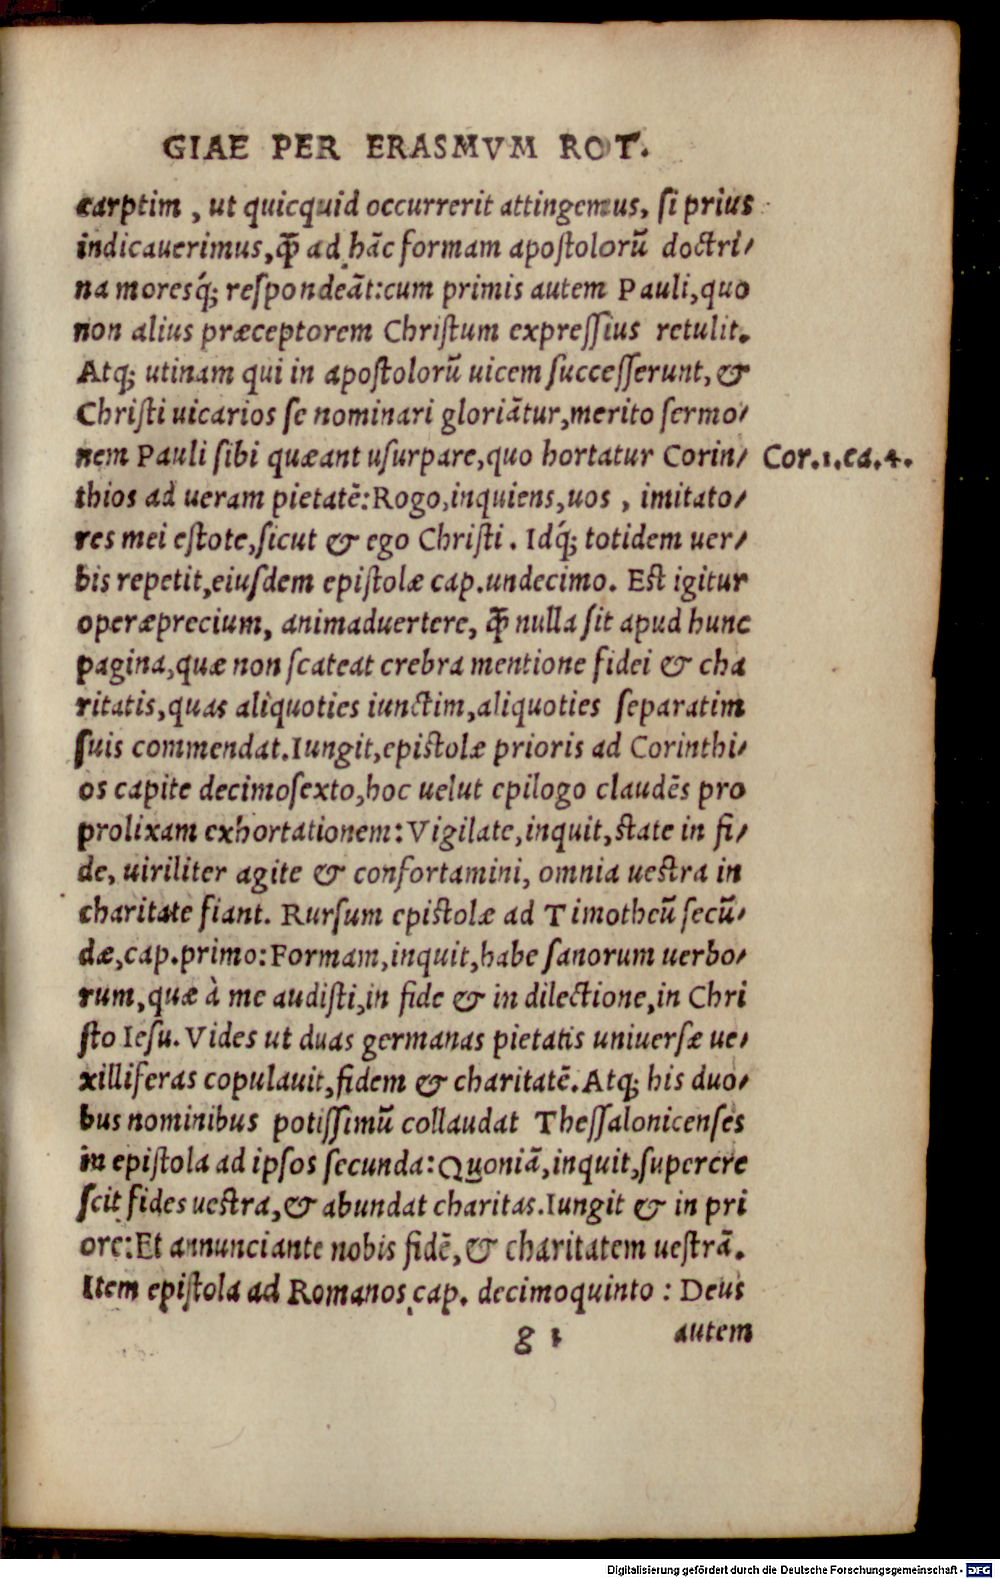 GIAE PER ERASMVM ROT.
carptim, ut quicquid occurrerit attingemus, ſi prius
indicauerimus, qꝫ̃ ad hãc formam apoſtolorũ doctri⸗
na moresq́ꝫ reſpondeãt: cum primis autem Pauli, quo
non alius præceptorem Chriſtum expreſſius retulit.
Atqꝫ utinam qui in apoſtolorũ uicem ſucceſſerunt, &
Chriſti uicarios ſe nominari gloriãtur, merito ſermo⸗
nem Pauli ſibi quæant uſurpare, quo hortatur Corin⸗ Cor.1.ca.4.
thios ad ueram pietatẽ: Rogo, inquiens, uos, imitato⸗
res mei eſtote, ſicut & ego Chriſti. Idq́ꝫ totidem uer⸗
bis repetit, eiuſdem epiſtolæ cap. undecimo. Eſt igitur
operæprecium, animaduertere, qꝫ̃ nulla ſit apud hunc
pagina, quæ non ſcateat crebra mentione fidei & cha
ritatis, quas aliquoties iunctim, aliquoties ſeparatim
ſuis commendat. Iungit, epiſtolæ prioris ad Corinthi⸗
os capite decimoſexto, hoc uelut epilogo claudẽs pro
prolixam exhortationem: Vigilate, inquit, ſtate in fi⸗
de, uiriliter agite & confortamini, omnia ueſtra in
charitate fiant. Rurſum epiſtolæ ad Timotheũ ſecũ⸗
dæ, cap. primo: Formam, inquit, habe ſanorum uerbo⸗
rum, quæ à me audiſti, in fide & in dilectione, in Chri
ſto Ieſu. Vides ut duas germanas pietatis uniuerſæ ue⸗
xilliferas copulauit, fidem & charitatẽ. Atqꝫ his duo⸗
bus nominibus potiſſimũ collaudat Theſſalonicenſes
in epiſtola ad ipſos ſecunda: Quoniã, inquit, ſupercre
ſcit fides ueſtra, & abundat charitas. Iungit & in pri
ore: Et annunciante nobis fidẽ, & charitatem ueſtrã.
Item epiſtola ad Romanos cap. decimoquinto : Deus
g 1 autem
Digitalisierung gefördert durch die Deutsche Forschungsgemeinschaft - DFG